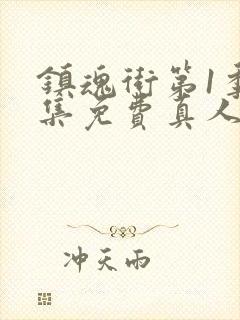 鎮魂街第1季
集免費真人
冲天雨